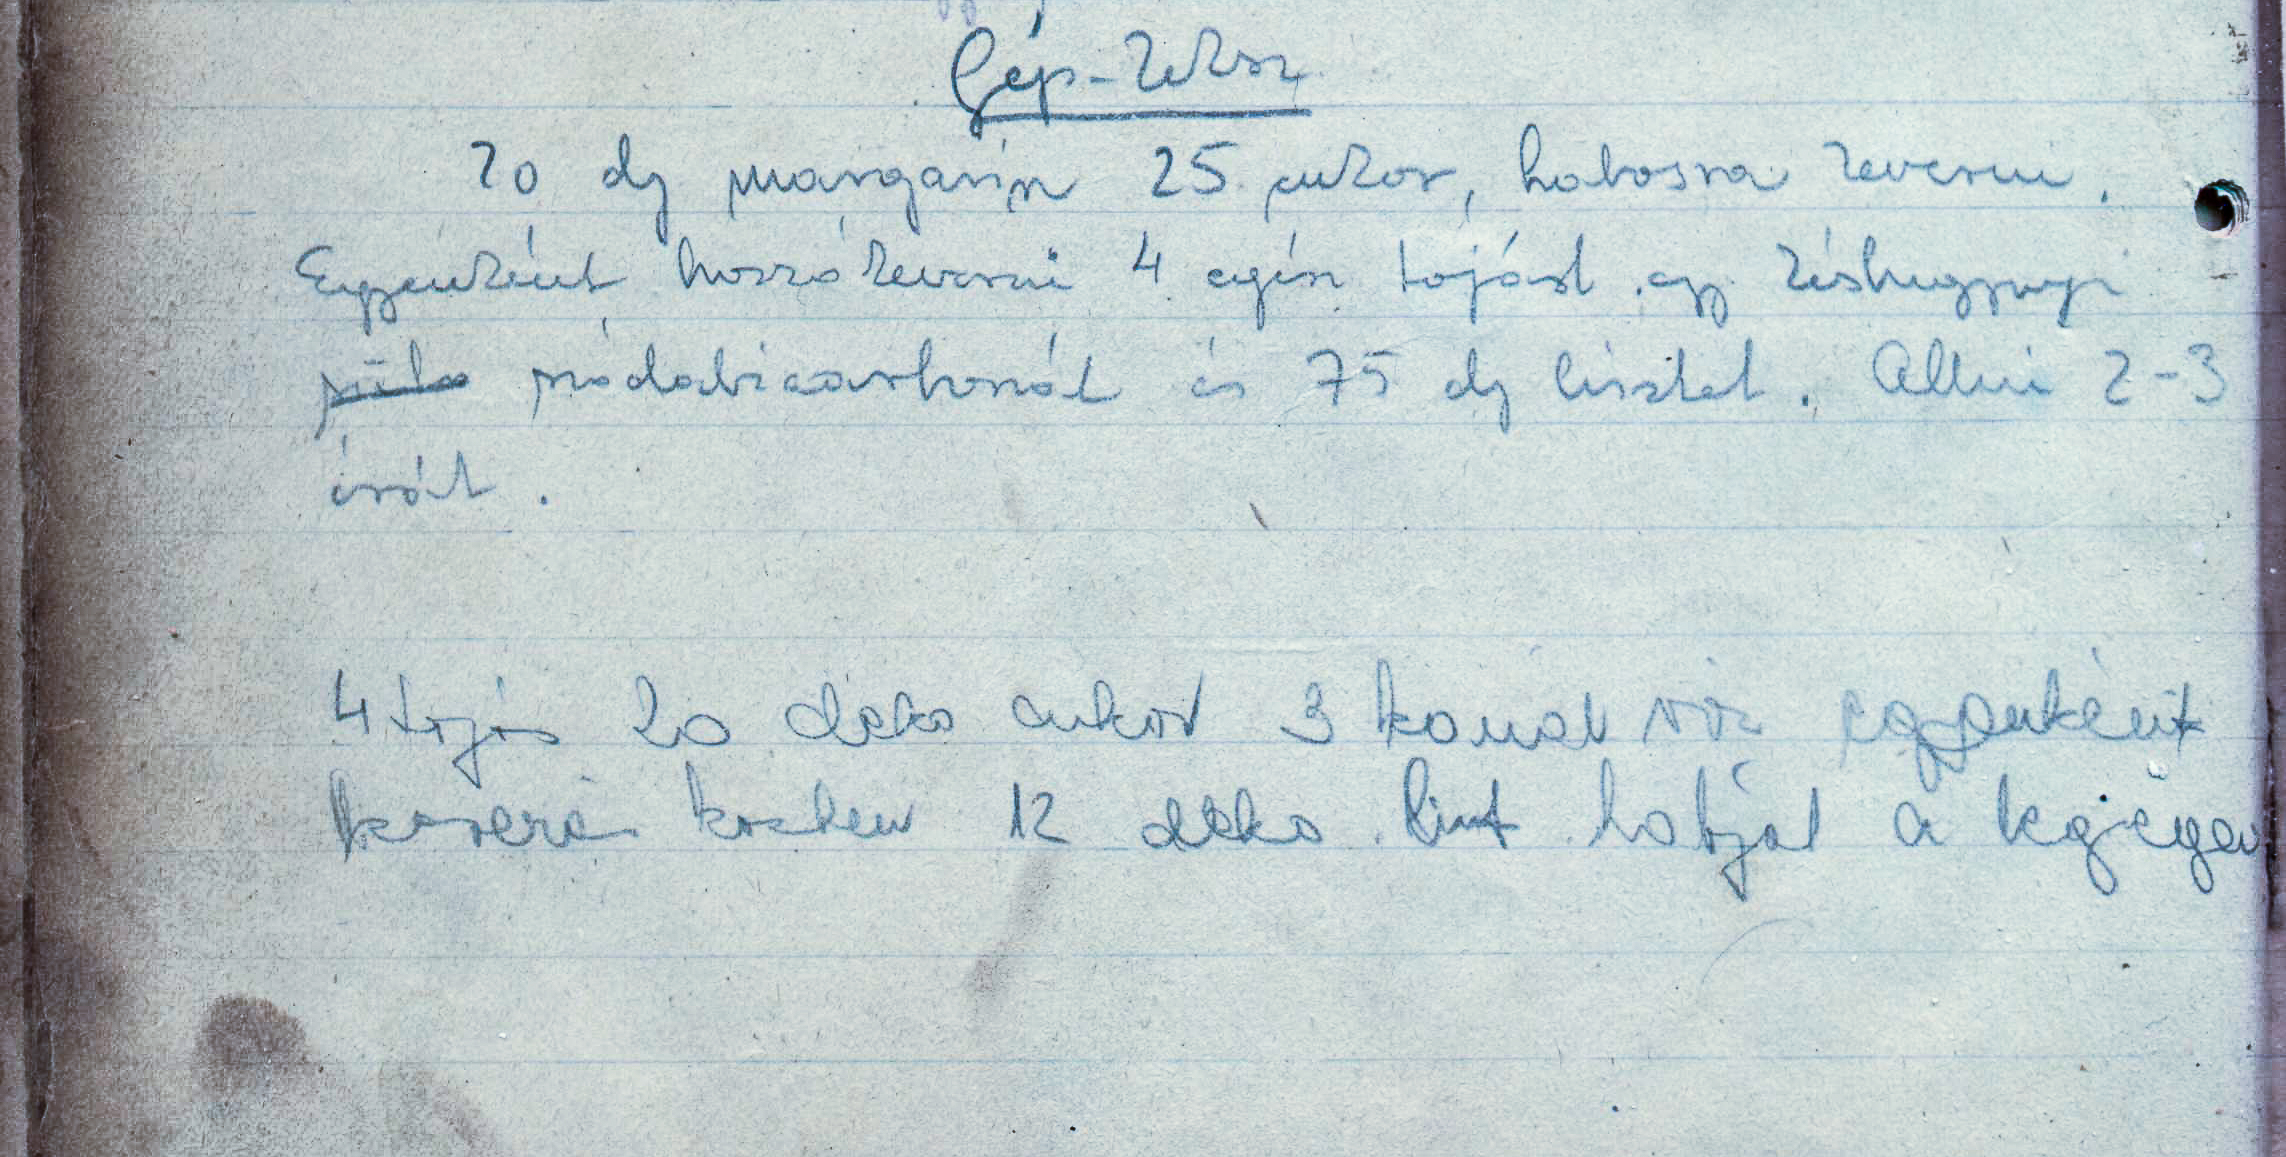 Gép-keksz
20 dg margarin 25 cukor, habosra keverni.
Egyenként hozzákeverni 4 egész tojást. egy késhegynyi
szódabicarbonát és 75 dg lisztet. Állni 2-3
órát.
4 tojás 20 deka cukor 3 kanál víz egyenként
12 deka liszt habját a